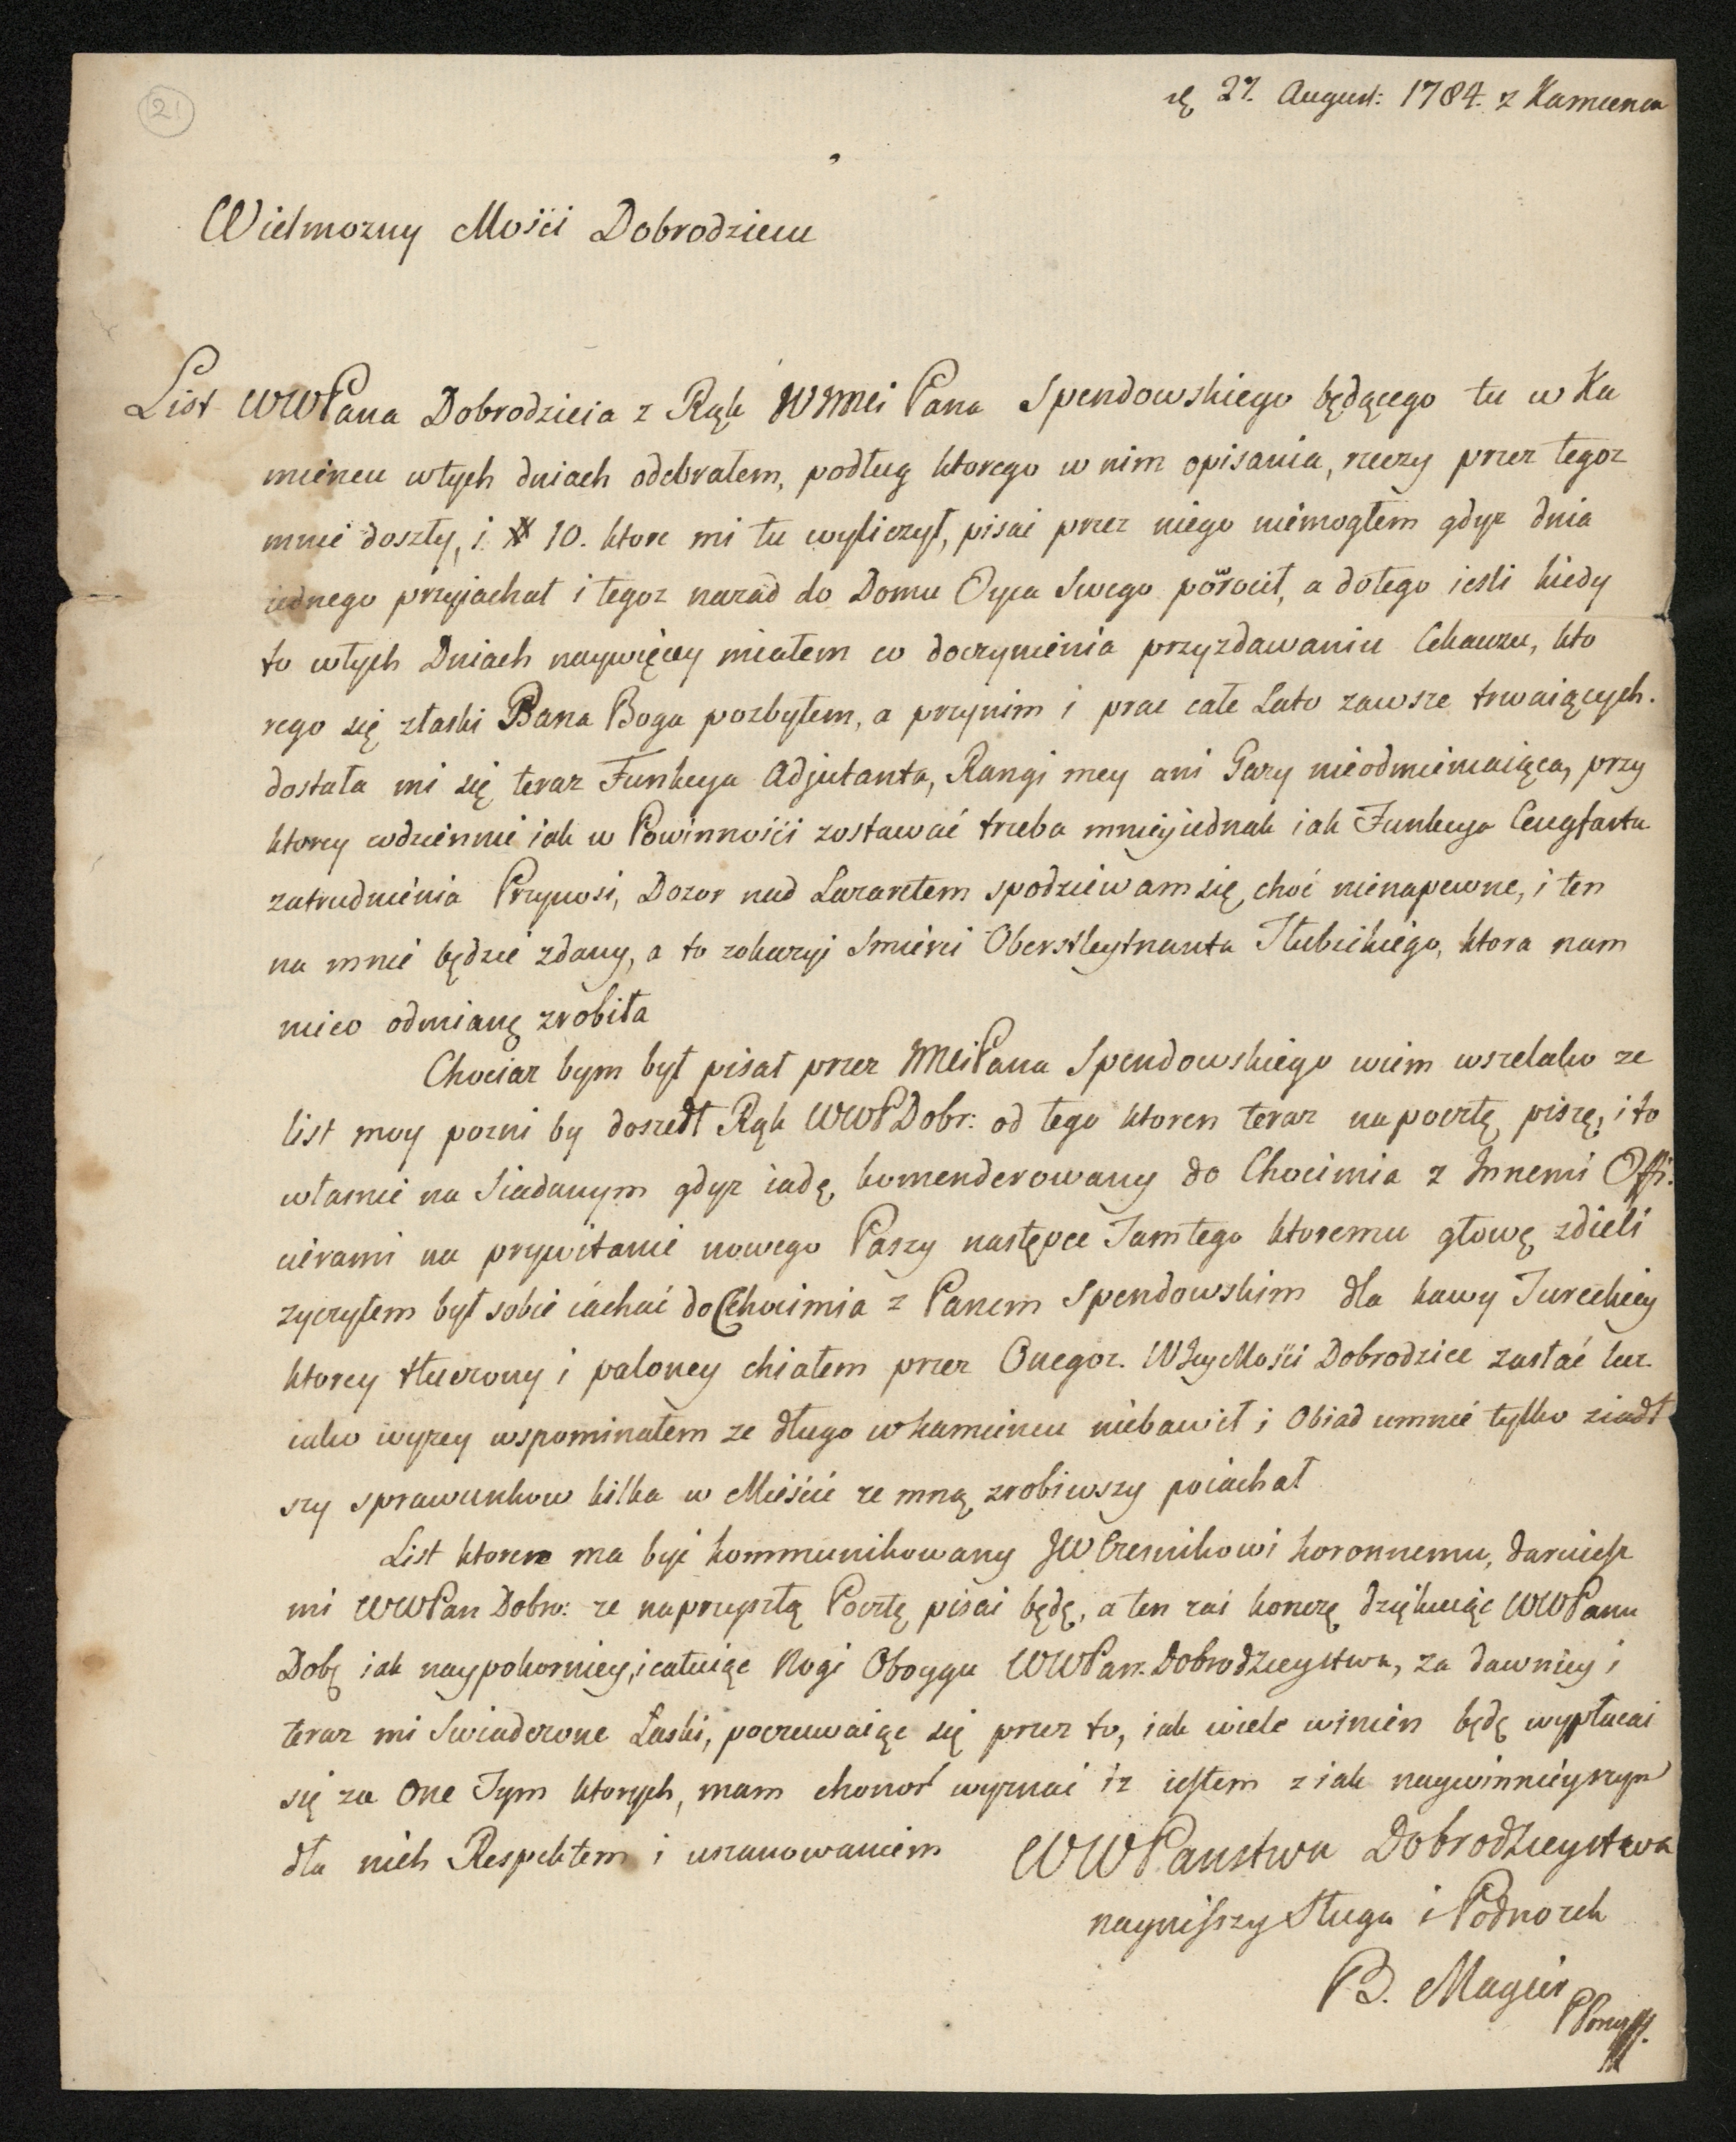 21
27. August: 1784. z Kamienca
Wielmozny Mości Dobrodzieiu
List WWPana Dobrodzieia z Rąk WMei Pana Spendowskiego będącego tu w Ka
miencu wtych dniach odebrałem, podług ktorego w nim opisania, rzeczy przez tegoz
mnie doszły, i # 10. ktore mi tu wyliczył, pisac przez niego niemogłem gdyz dnia
iednego przyiachał i tegoz nazad do Domu Oyca Swego powrocił, a dotego iesli kiedy
to wtych Dniach naywięcey miałem co doczynienia przyzdawaniu Cekauzu, kto
rego się złaski Pana Boga pozbyłem, a przynim i prac całe Lato zawsze trwaiących.
dostała mi się teraz Funkcya Adjutanta, Rangi mey ani Gazy nieodmieniaiąca, przy
ktorey codziennie iak w Powinności zostawać trzeba mniey iednak iak Funkcya Ceugfarta
zatrudnienia Przynosi, Dozor nad Lazaretem spodziewam się, choć nienapewne, i ten
na mnie będzie zdany, a to zokazyi Smierci Oberstleytnanta Hubickiego, ktora nam
nieco odmianę zrobiła
Chociaz bym był pisał przez MciPana Spendowskiego wiem wszelako ze
list moy pozni by doszedł Rąk WWPDobr: od tego ktoren teraz napocztę piszę, i to
własnie na Siadanym gdyz iadę komenderowany do Chocimia z Innemi Offi:
cierami na prywitanie nowego Paszy następce Tamtego ktoremu głowę zdieli
zyczyłem był sobie iachać do Chocimia z Panem Spendowskim dla kawy Tureckiey
ktorey tłuczony i paloney chiałem przez Onegoz. WJeyMości Dobrodzice zasłać lecz
iako wyzey wspominałem ze długo w kamiencu niebawił i Obiad umnie tylko ziadł
szy sprawunkow kilka w Mieście ze mną zrobiwszy poiachał
List ktoren ma byc kommunikowany JWCzesnikowi koronnemu, daruiesz
mi WWPan Dobr: ze naprzyszłą Pocztę pisac będę, a ten zas konczę dziękuiąc WWPanu
Dobę iak naypokorniey, i całuiąc Nogi Oboyga WWPan: Dobrodzieystwa, za dawniey i
teraz mi Swiadczone Łaski, poczuwaiąc się przez to, iak wiele winien będę wypłacac
się za One Tym ktorych, mam chonor wyznac iz iestem z iak naywinnieyszym
dla nich Respektem i uszanowaniem WWPanstwa Dobrodzieystwa
nayniższy Sługa i Podnozek
B. Magier